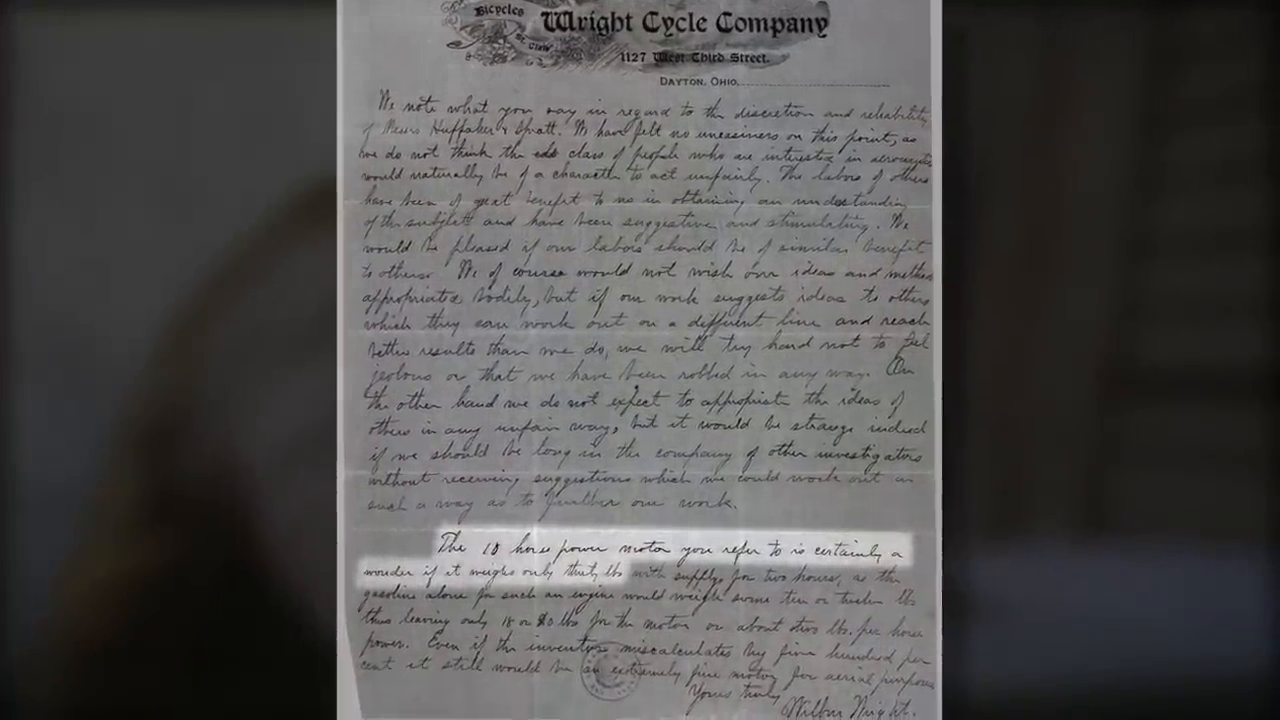 Bicycles
Wright Cycle Company
St. Clair
1127 West Third Street.
DAYTON, OHIO,
We note what you say in regard to the discretion and reliability
of Messrs Huffaker & Spratt. We have felt no uneasiness on this point, as
we do not think the class of people who are interested in aeronautics
would naturally be of a character to act unfairly. The labors of others
have been of great benefit to us in obtaining an understanding
of the subject and have been suggestive and stimulating. We
would be pleased if our labors should be of similar benefit
to others. We of course would not wish our ideas and methods
appropriated bodily, but if our work suggests ideas to others
which they can work out on a different line and reach
better results than we do, we will try hard not to feel
jealous or that we have been robbed in any way. On
the other hand we do not expect to appropriate the ideas of
others in any unfair way, but it would be strange indeed
if we should be long in the company of other investigators
without receiving suggestions which we could work out in
such a way as to further our work.
The 10 horse power motor you refer to is certainly a
wonder if it weighs only thirty lbs with supplys for two hours, as the
gasoline alone for such an engine would weigh some ten or twelve lbs
thus leaving only 18 or 20 lbs for the motor or about two lbs. per horse
power. Even if the inventor miscalculates by five hundred per
cent it still would be an extremely fine motor for aerial purposes
Yours truly
Wilbur Wright.